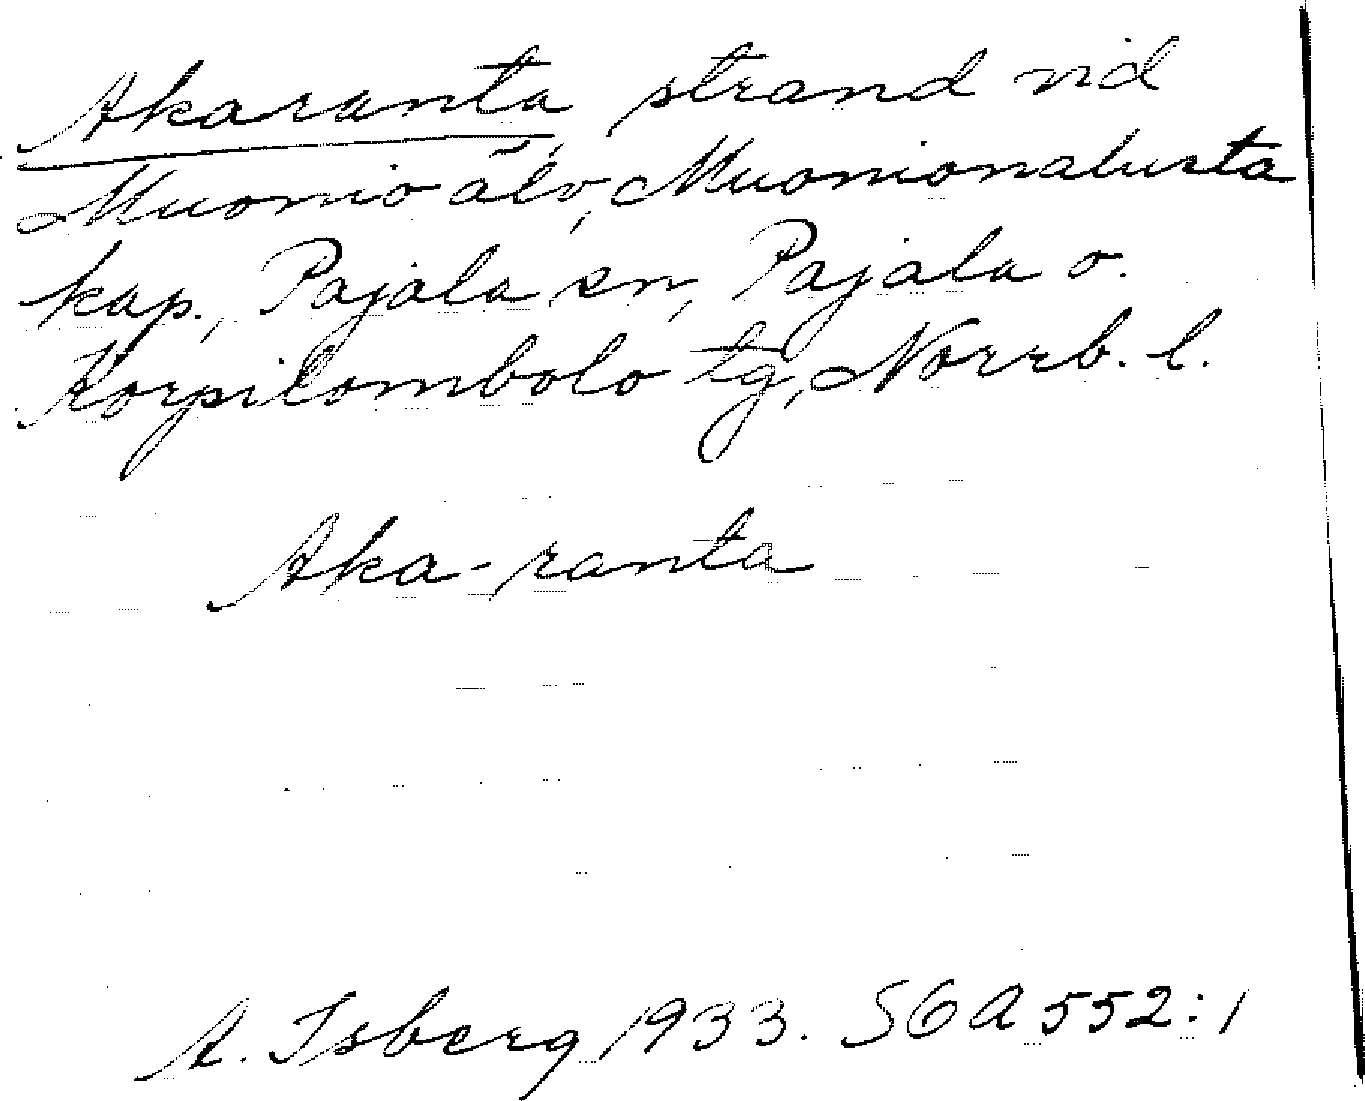 Akaranta, strand vid
Muonio älv, Muonionalusta
kap., Pajala sn, Pajala o.
Korpilombolo tg, Norrb. l.
Aka-ranta
A. Isberg 1933. SOA 552:1